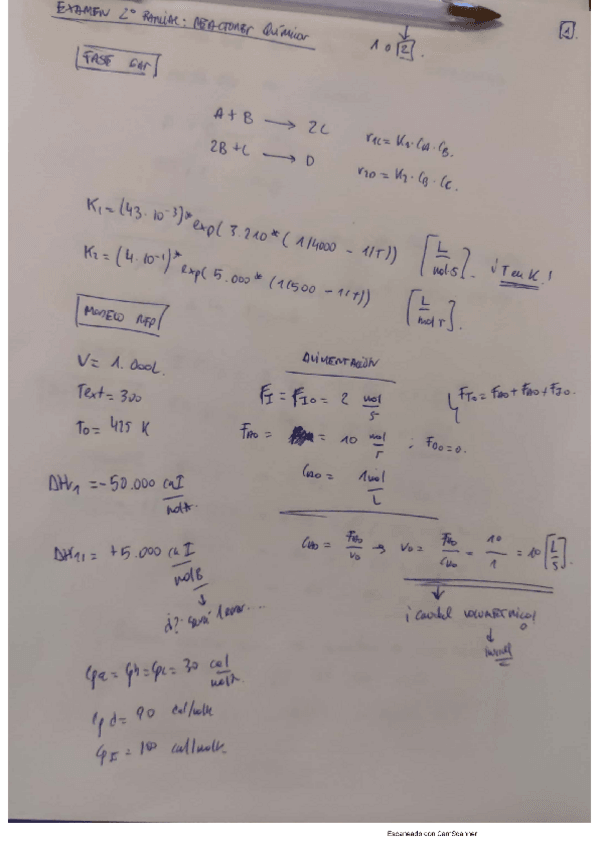 EXAMEN 2º PARCIAL: REACTORES QUÍMICOS
1 o 2.
1
FASE GAS
A + B → 2C r1C = K1 · CA · CB.
2B + C → D r2D = K2 · CB · CC.
K1 = (43 · 10^-3)* exp(3.210* (1/4000 - 1/T)) [L/mol·s]. ¡T en K!
K2 = (4 · 10^-1)* exp(5.000* (1/500 - 1/T)) [L/mol T].
MODELO RFP
V = 1.000L.
Text = 300
T0 = 425 K
ALIMENTACIÓN
FI = FI0 = 2 mol/s
FT0 = FA0 + FB0 + FI0.
FA0 = = 10 mol/s ; FD0 = 0.
CA0 = 1 mol/L
ΔHr1 = -50.000 cal/molA
CA0 = FA0/V0 → V0 = FA0/CA0 = 10/1 = 10 [L/s].
¡caudal volumétrico!
ΔHr2 = +5.000 cal/molB
¿?
CpA = CpB = CpC = 30 cal/molK
Cp d = 90 cal/molK
CpI = 100 cal/molK.
Escaneado con CamScanner